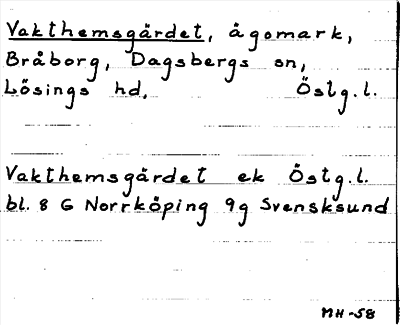 Vakthemsgärdet, ägomark,
Bråborg, Dagsbergs sn,
Lösings hd. Östg.l.
Vakthemsgärdet ek Östg.l.
bl. 8 G Norrköping 9g Svensksund
MH-58